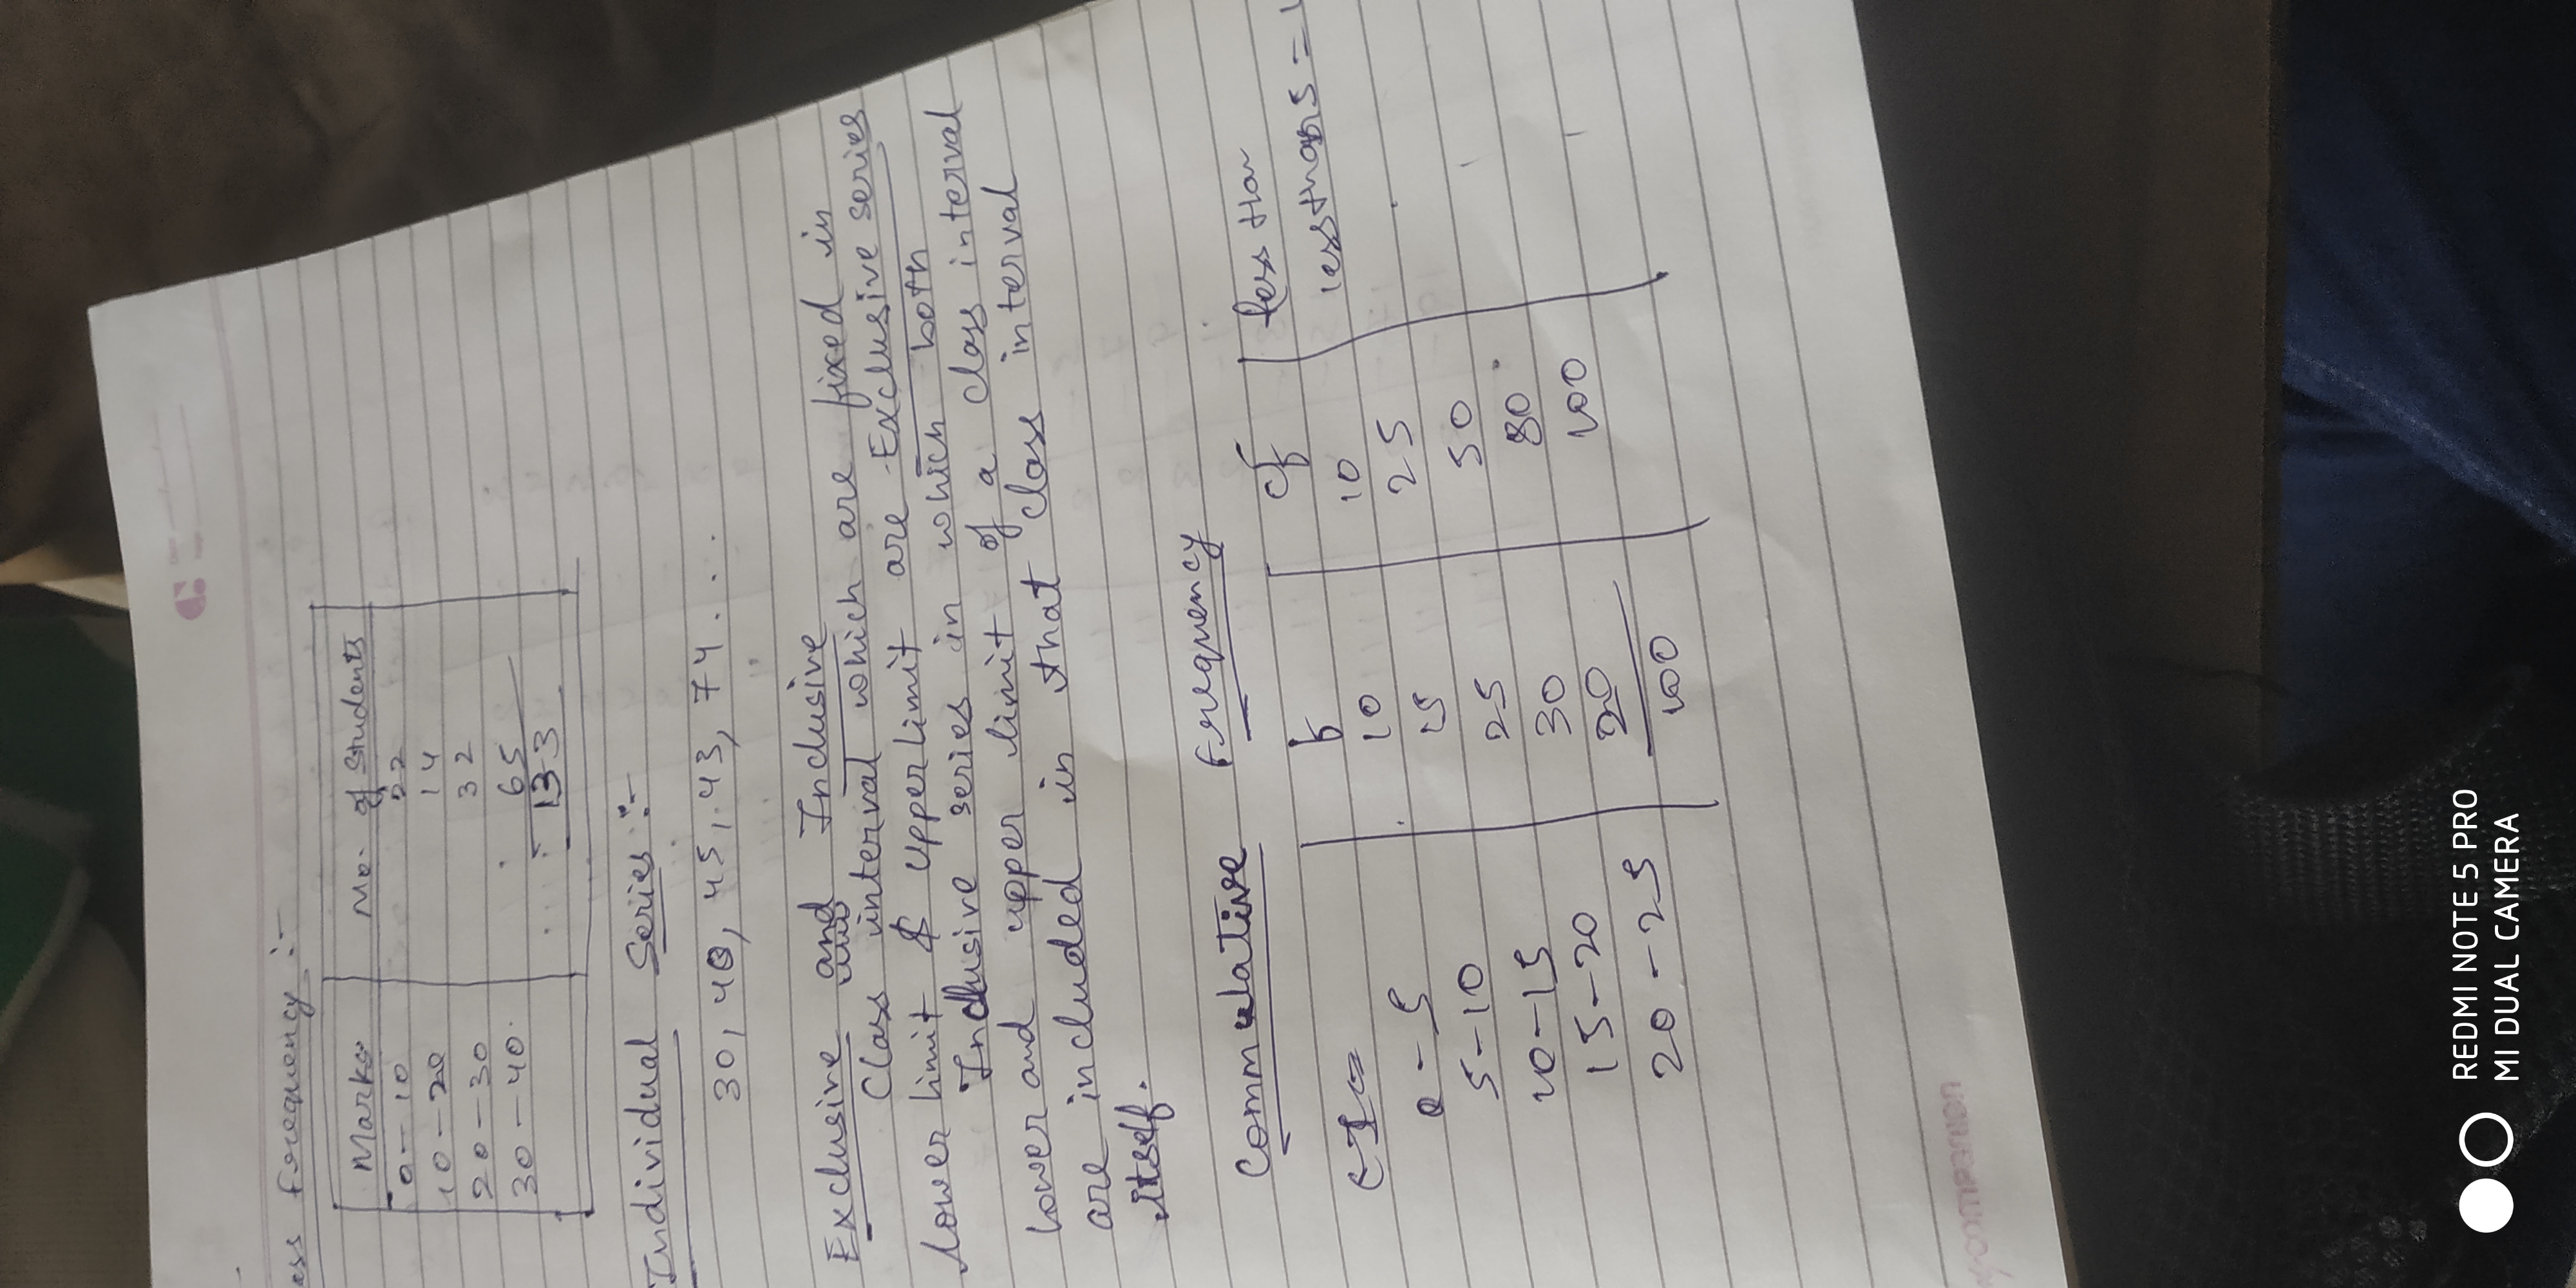 ess Frequency :-
Marks No. of Students
0-10 22
10-20 14
20-30 32
30-40 65
133
Individual Series :-
30, 40, 45, 43, 74 . . .
Exclusive and Inclusive
Class interval which are fixed in
lower limit & upper limit are Exclusive series
Inclusive series in which both
lower and upper limit of a class interval
are included in that class interval
itself.
Commulative Frequency
f cf less than
0-5 10 10 less than 5 =
5-10 15 25
10-15 25 50
15-20 30 80
20-25 20 100
100
companion
REDMI NOTE 5 PRO
MI DUAL CAMERA